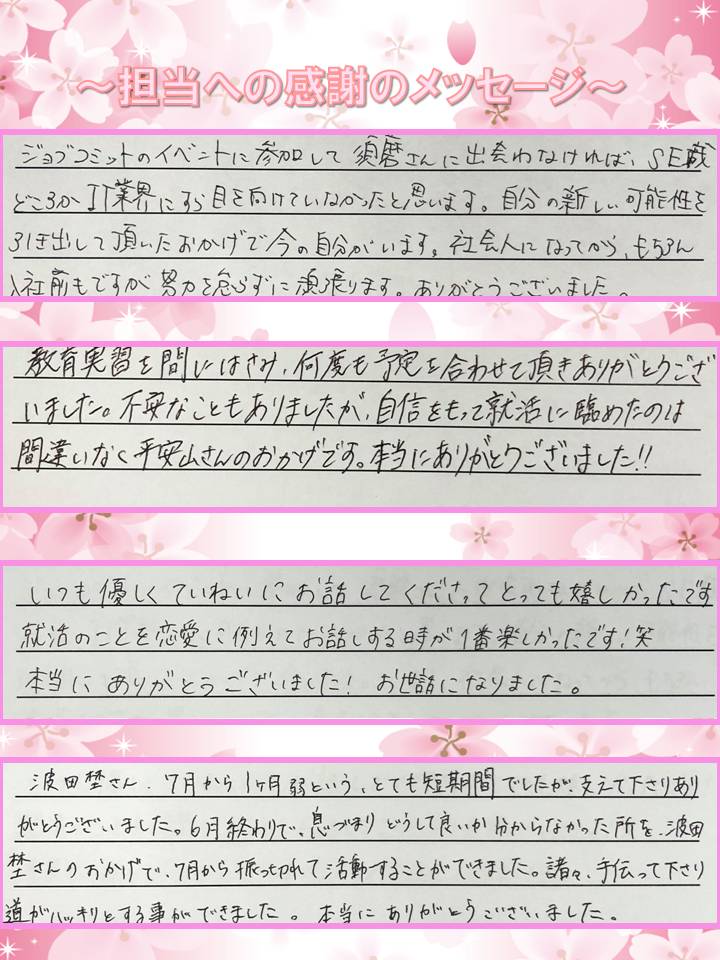 ～担当への感謝のメッセージ～
ジョブコミットのイベントに参加して須磨さんに出会わなければ、SE職
どころかIT業界にすら目を向けていなかったと思います。自分の新しい可能性を
引き出して頂いたおかげで今の自分がいます。社会人になってから、もちろん
入社前もですが努力を怠らずに頑張ります。ありがとうございました。
教育実習を間にはさみ、何度も予定を合わせて頂きありがとうござ
いました。不安なこともありましたが、自信をもって就活に臨めたのは
間違いなく平安山さんのおかげです。本当にありがとうございました!!
いつも優しくていねいにお話してくださってとっても嬉しかったです
就活のことを恋愛に例えてお話しする時が1番楽しかったです!笑
本当にありがとうございました! お世話になりました。
波田埜さん、7月から1ヶ月弱という、とても短期間でしたが、支えて下さりあり
がとうございました。6月終わりで、息づまりどうして良いか分からなかった所を、波田
埜さんのおかげで、7月から振っ切れて活動することができました。諸々、手伝って下さり
道がハッキリとする事ができました。本当にありがとうございました。